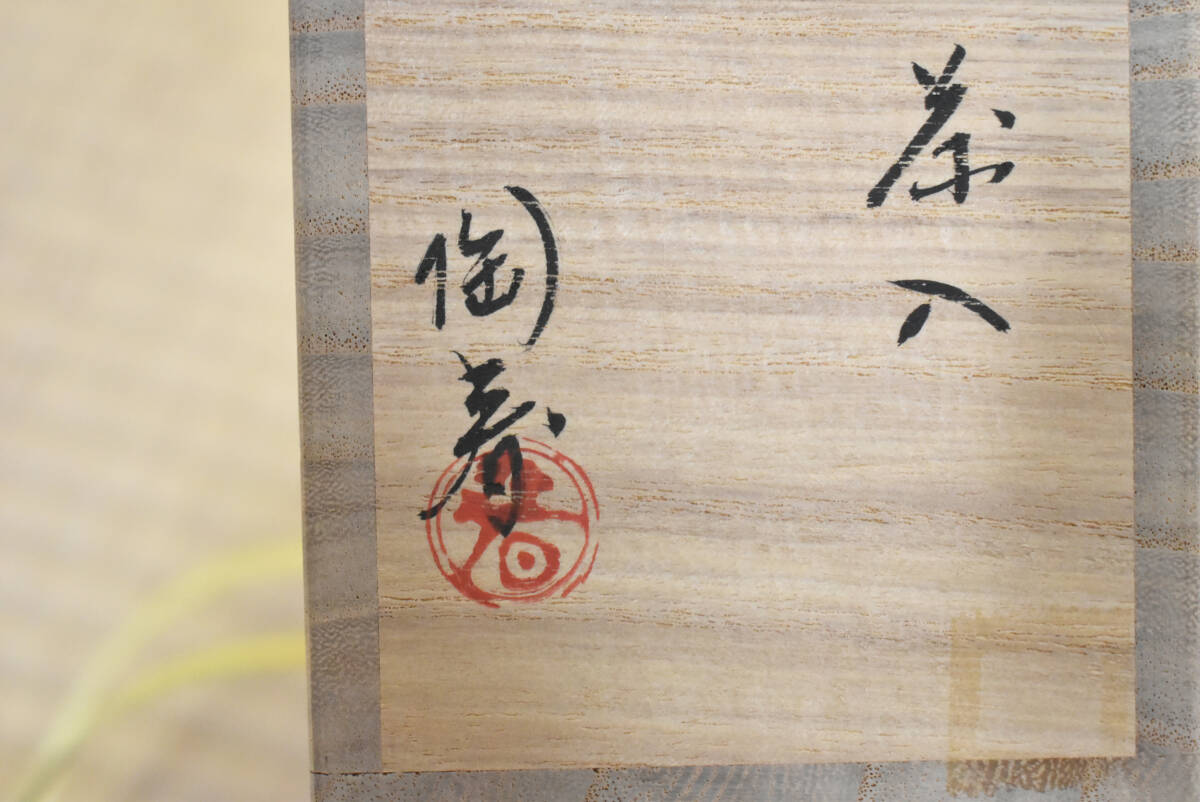 茶入
陶春